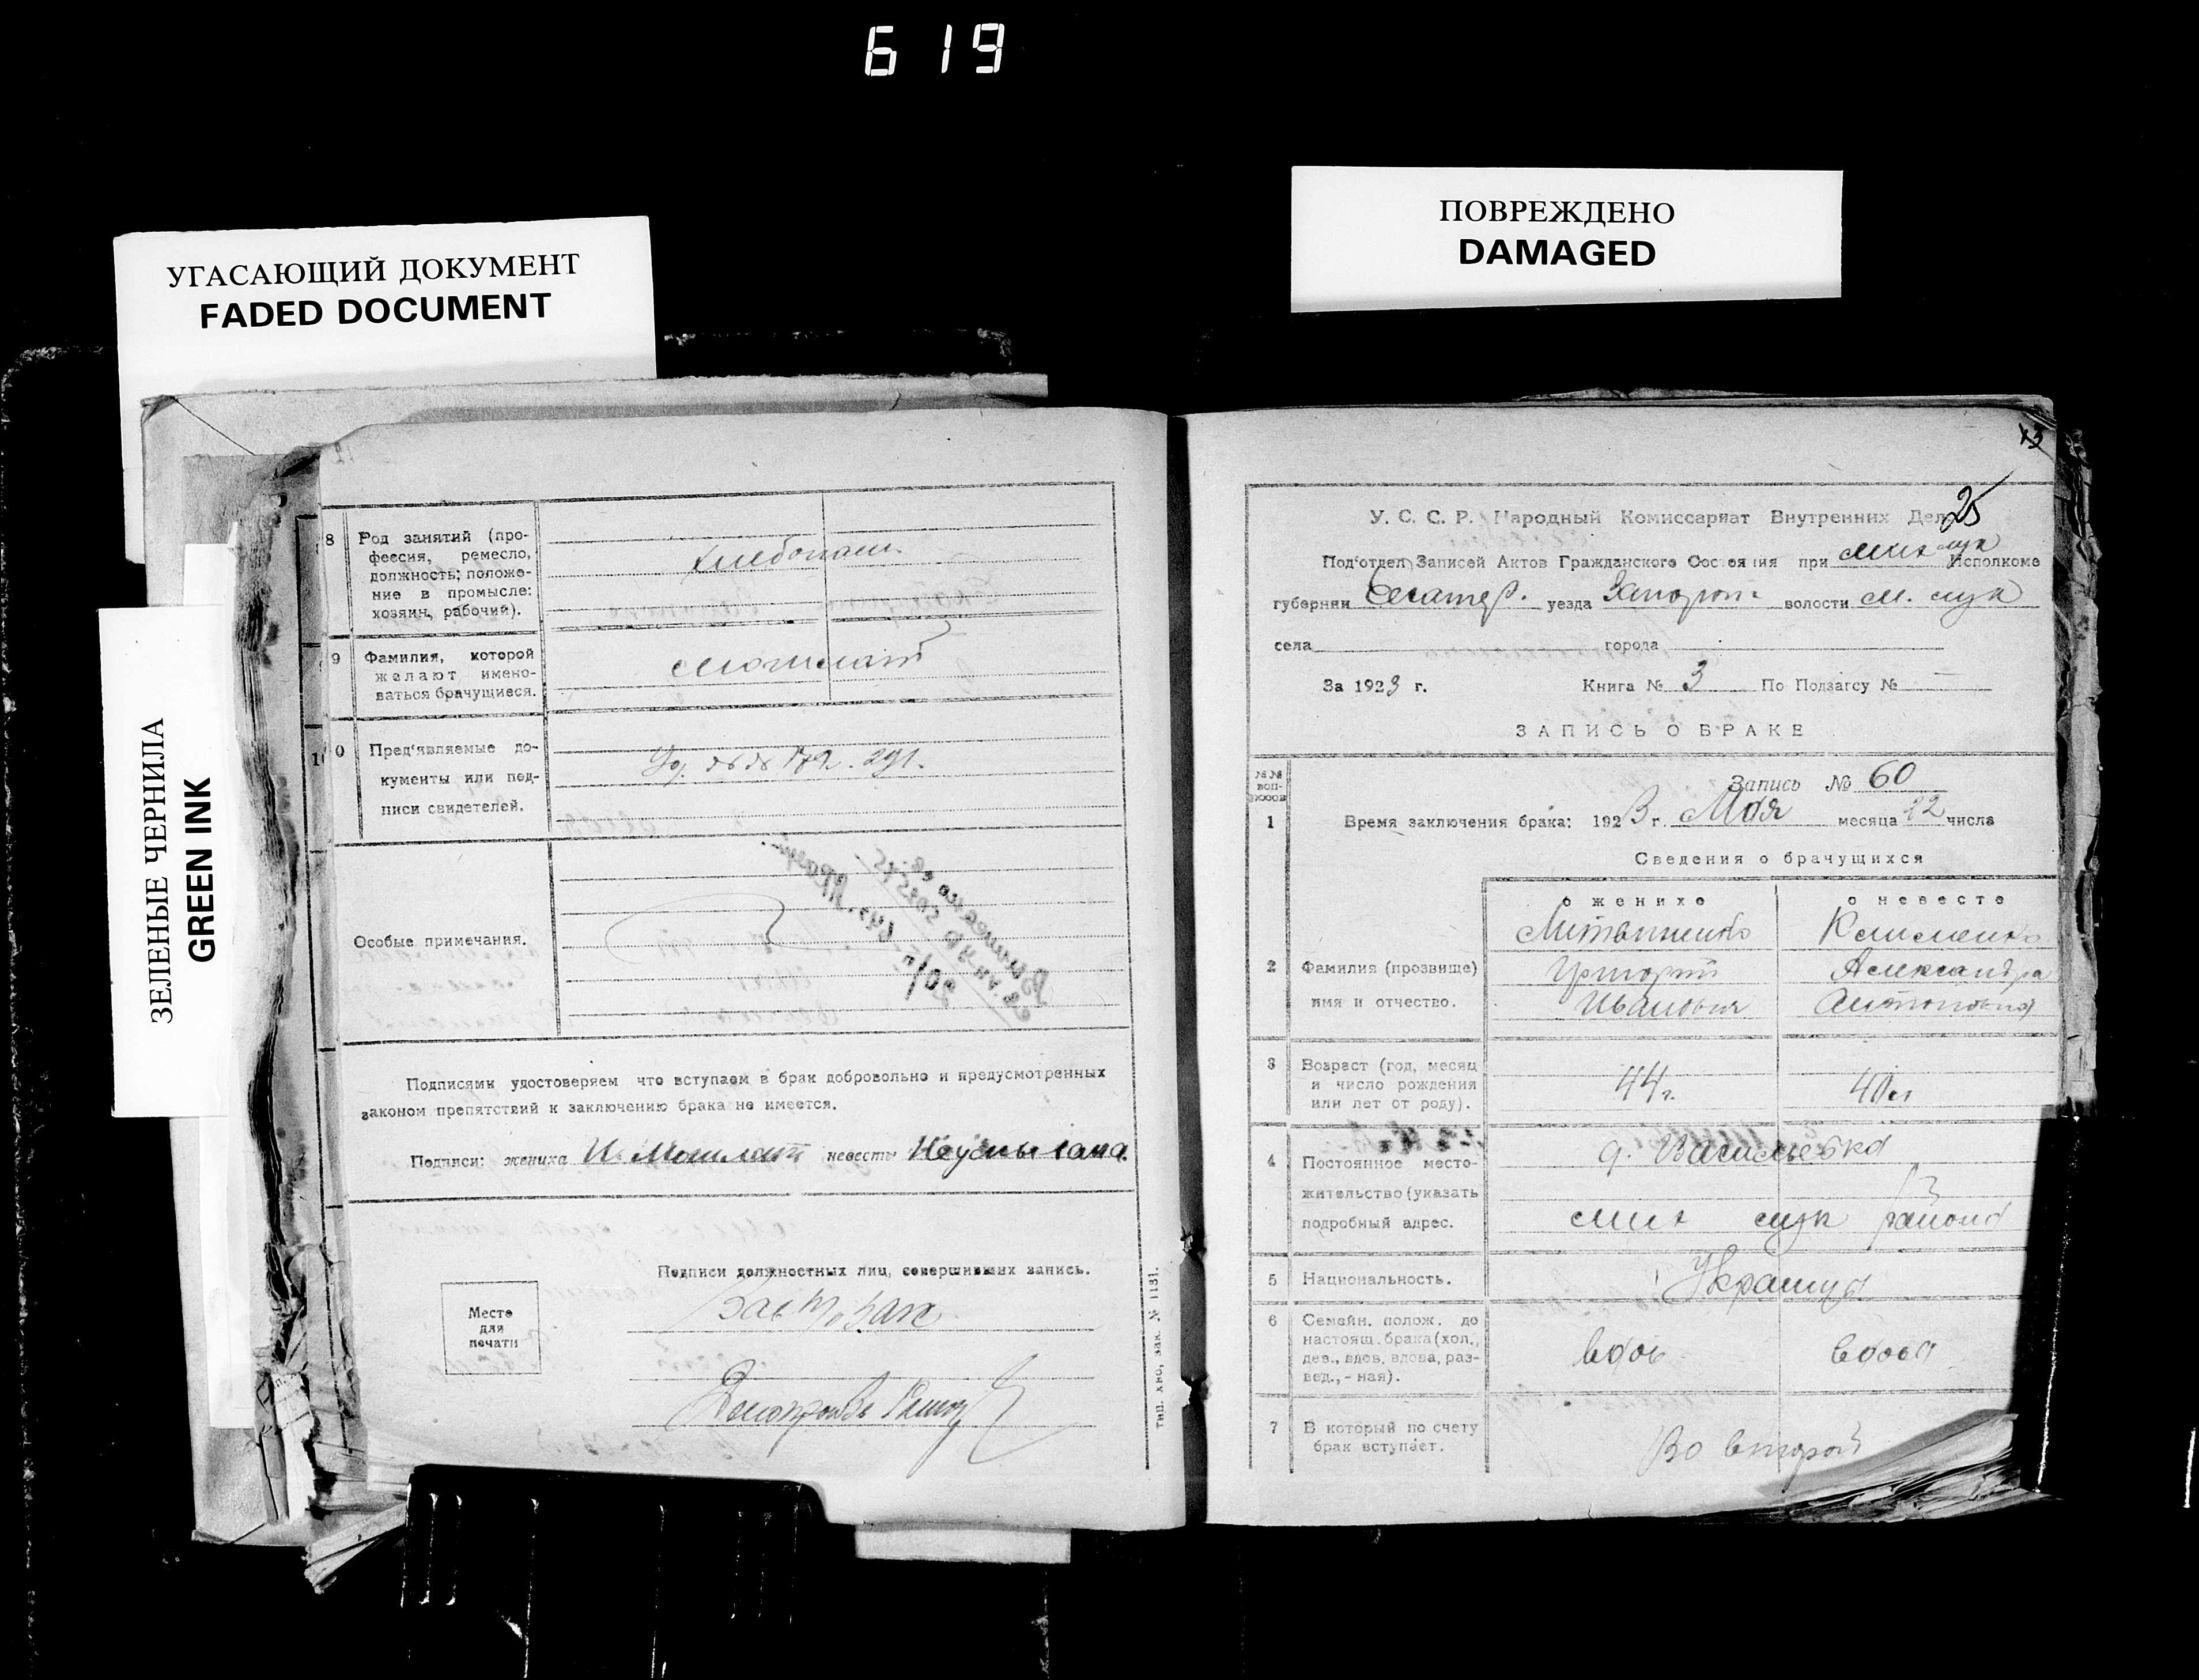 619
УГАСАЮЩИЙ ДОКУМЕНТ
FADED DOCUMENT
ПОВРЕЖДЕНО
DAMAGED
ЗЕЛЕНЫЕ ЧЕРНИЛА
GREEN INK
8 Род занятий (про-
фессия, ремесло,
должность; положе-
ние в промысле:
хозяин, рабочий).
Хлебопаш.
9 Фамилия, которой
желают имено-
ваться брачущиеся.
10 Пред'являемые до-
кументы или под-
писи свидетелей.
291.
Особые примечания.
Подписями удостоверяем что вступаем в брак добровольно и предусмотренных
законом препятствий к заключению брака не имеется.
Подписи: жениха невесты
Подписи должностных лиц, совершивших запись.
Зав
Место
для
печати
тип. хно, зак. № 1131.
25
У. С. С. Р. Народный Комиссариат Внутренних Дел
Под'отдел Записей Актов Гражданского Состояния при Мих лук Исполкоме
губернии Екатер. уезда Запорож волости М. лук
села города
За 1923 г. Книга № 3 По Подзагсу №
ЗАПИСЬ О БРАКЕ
№№ воп-
Запись № 60
1 Время заключения брака: 1923 г. Мая месяца 22 числа
Сведения о брачущихся
о женихе о невесте
2 Фамилия (прозвище)
имя и отчество.
Григорий
Иванович
Клименко
Александра
Антоновна
3 Возраст (год, месяц
и число рождения
или лет от роду).
44 г. 40 л
4 Постоянное место-
жительство (указать
подробный адрес.
д. Васильевка
Мих лук района
5 Национальность.
Украинцы
6 Семейн. полож. до
настоящ. брака (хол.,
дев., вдов, вдова, раз-
вед., - ная).
вдов вдова
7 В который по счету
брак вступает.
Во второй